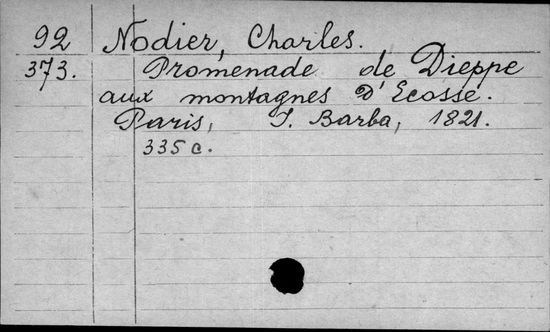 92 Nodier, Charles.
373. Promenade de Dieppe
aux montagnes d'Ecosse.
Paris, J. Barba, 1821.
335 c.